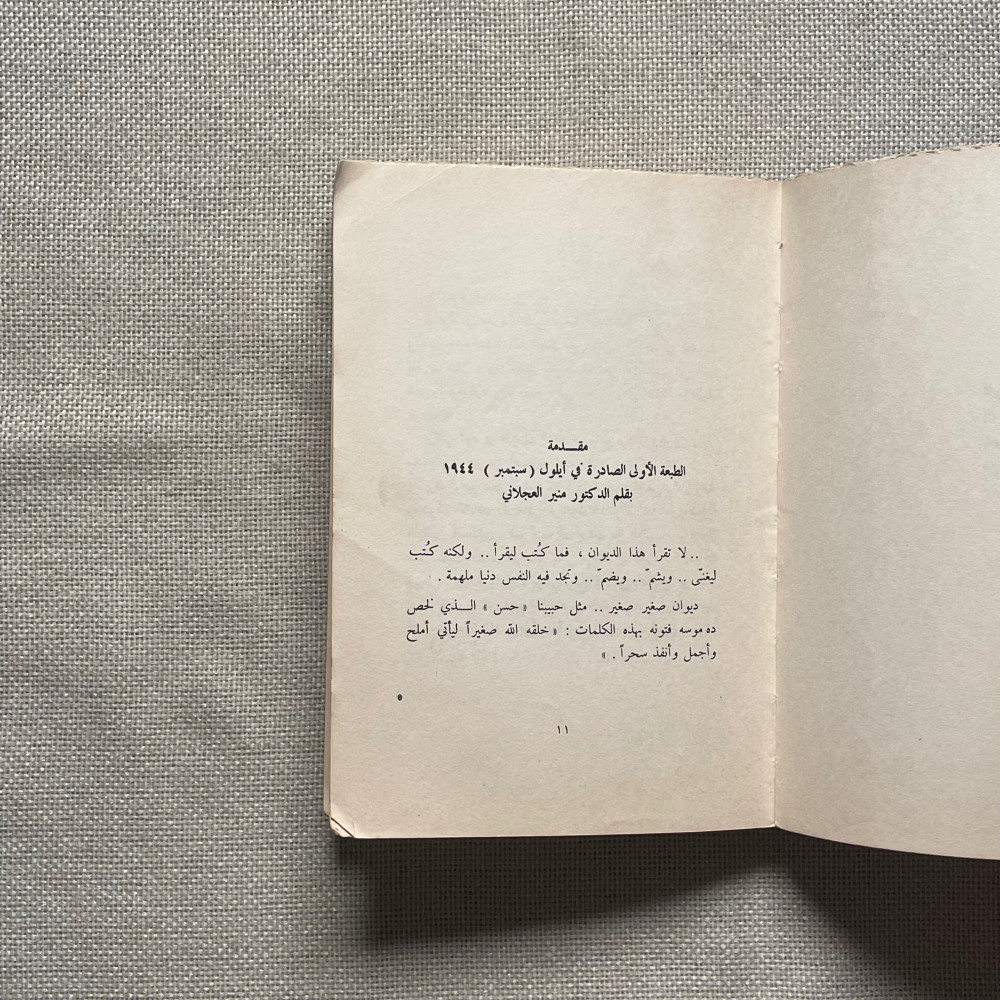 مقـــدمة
الطبعة الأولى الصادرة في أيلول ( سبتمبر ) ١٩٤٤
بقلم الدكتور منير العجلاني
.. لا تقرأ هذا الديوان ، فما كُتب ليقرأ .. ولكنه كُتب
ليغنّى .. ويشمّ .. ويضمّ .. وتجد فيه النفس دنيا ملهمة .
ديوان صغير صغير .. مثل حبيبنا « حسن » الـــذي لخص
ده موسه فتونه بهذه الكلمات : « خلقه الله صغيراً ليأتي أملح
وأجمل وأنفذ سحراً . »
١١